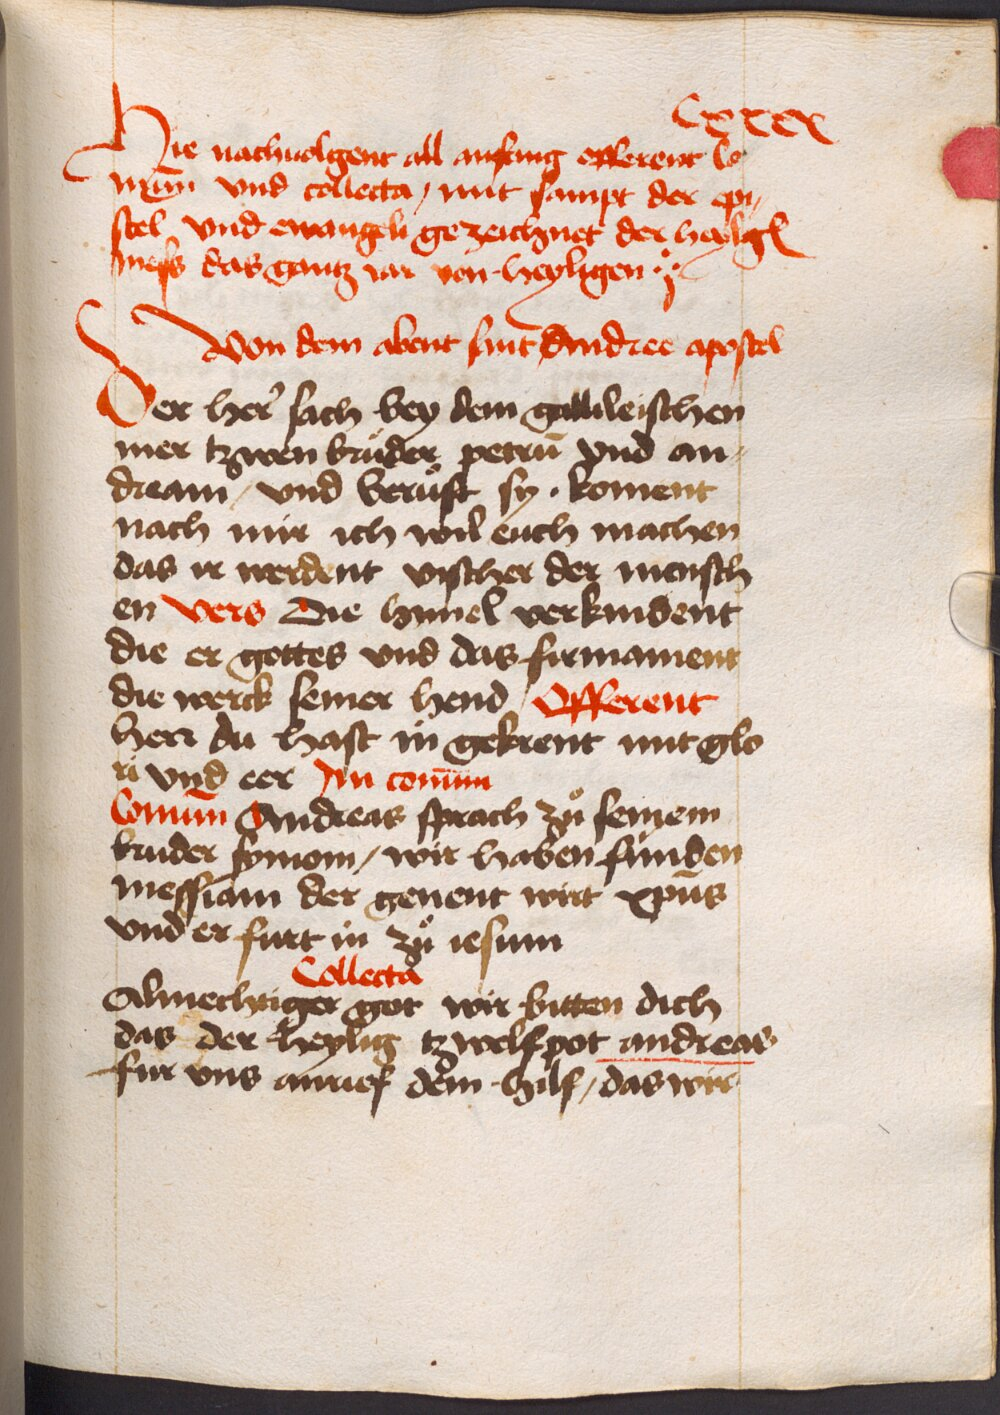 Cxxxx
Hie nachuolgent all anfang offerent Co
mūm vnd collecta / mit sampt der epi /
stel vnd ewangeli gezeichnet der heylgē
mess das gantz iar von heyligen
Von dem abent sant Andree apostel
Der her sach bey dem gallileischen
mer tzwen brůder petrū vnd an-
dream / vnd berůft sy . koment
nach mir ich wil euch machen
das ir werdent vischer der mensch
en vers Die hymel verkindent
die er gottes vnd das firmament
die werck seiner hend / Offerent
herr du hast in gekrent mit glo
ri vnd eer In comūm
Comūm Andreas sprach zů seinem
bruder symom / wir haben funden
messiam der genent wirt xp̄us
vnd er furt in zů iesum
Collecta
Almechtiger got wir bitten dich
das der heylig tzwelfpot andreas
fur vns anrief dein hilf / das wir